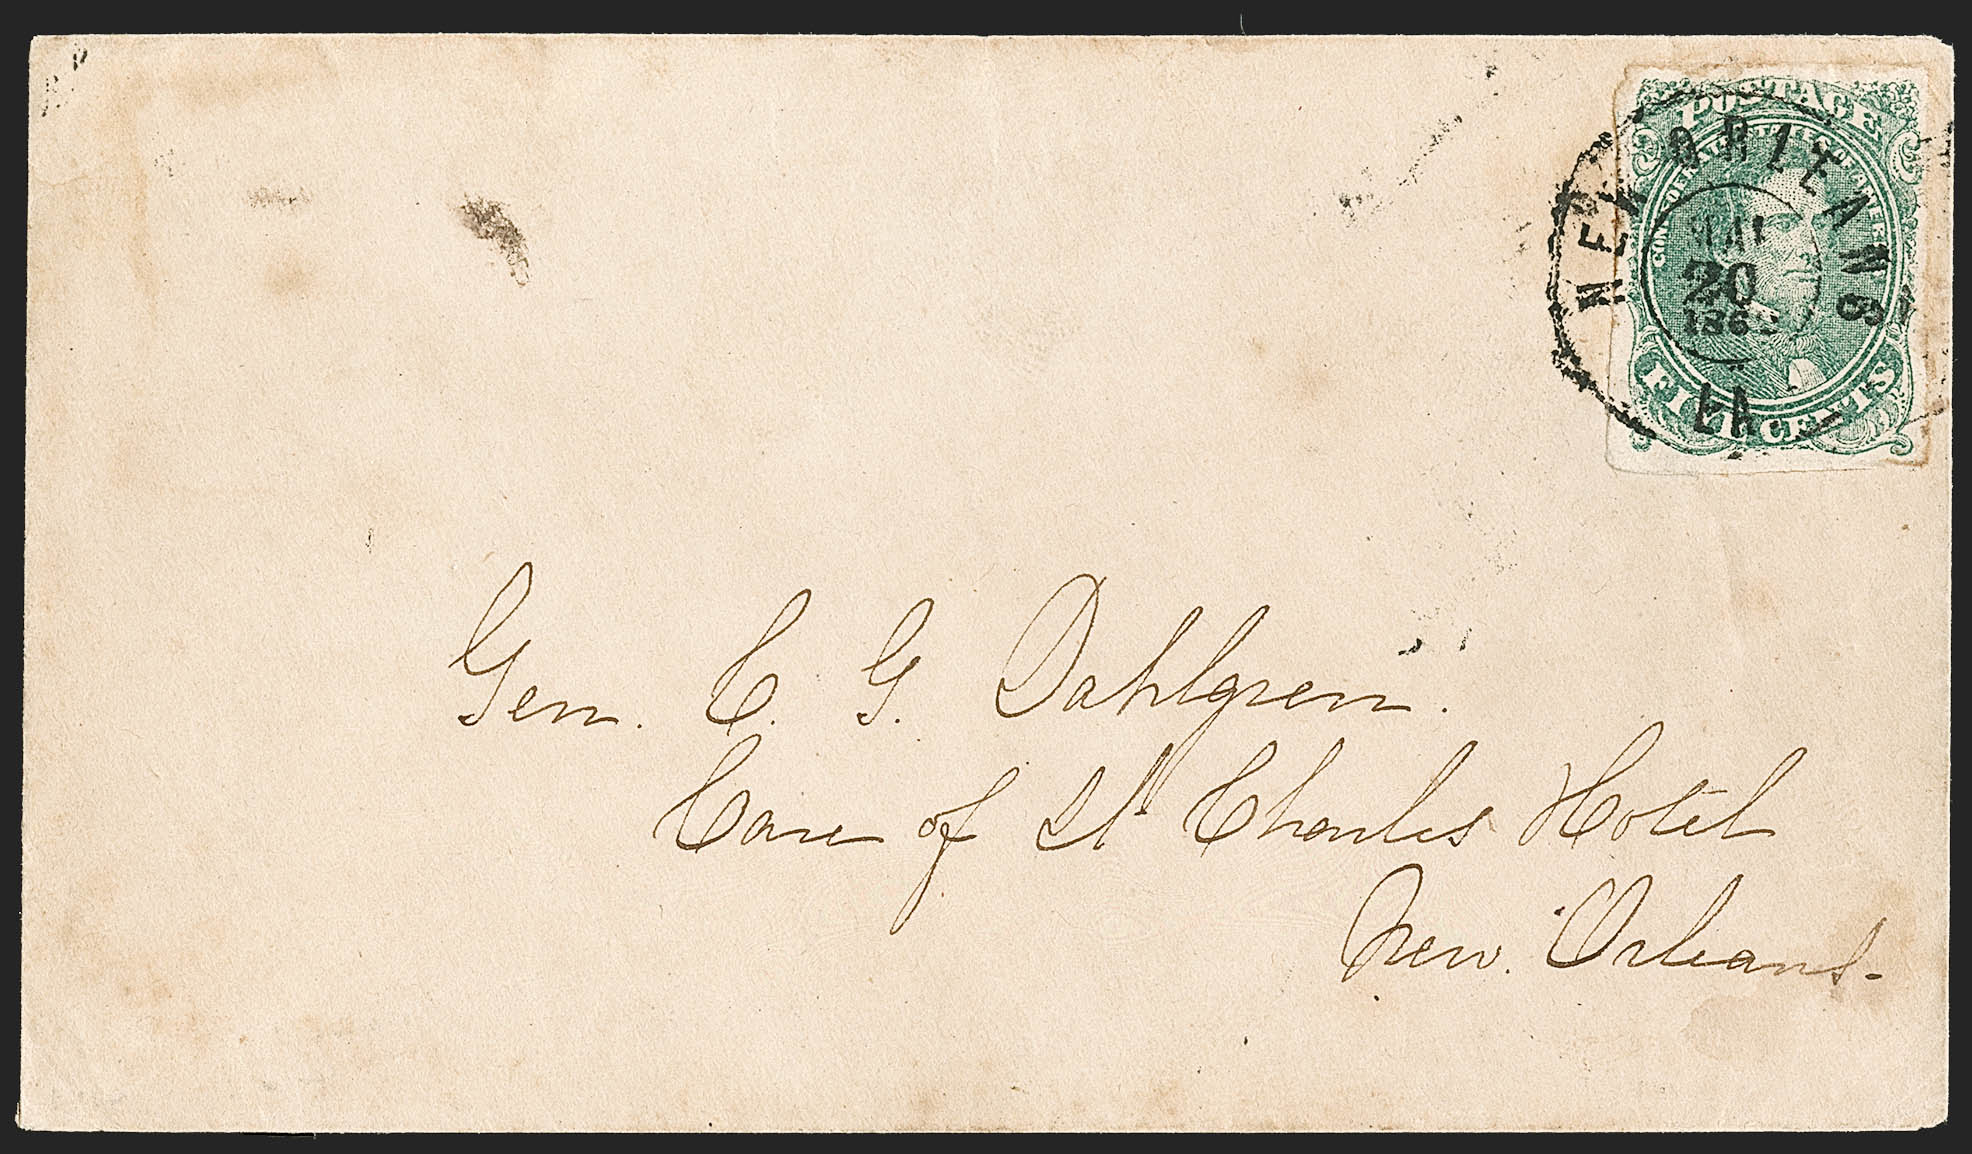 POSTAGE
CONFEDERATE STATES OF AMERICA
FIVE CENTS
NEW ORLEANS
20
186
LA
Gen. C. G. Dahlgren.
Care of St Charles Hotel
New Orleans-